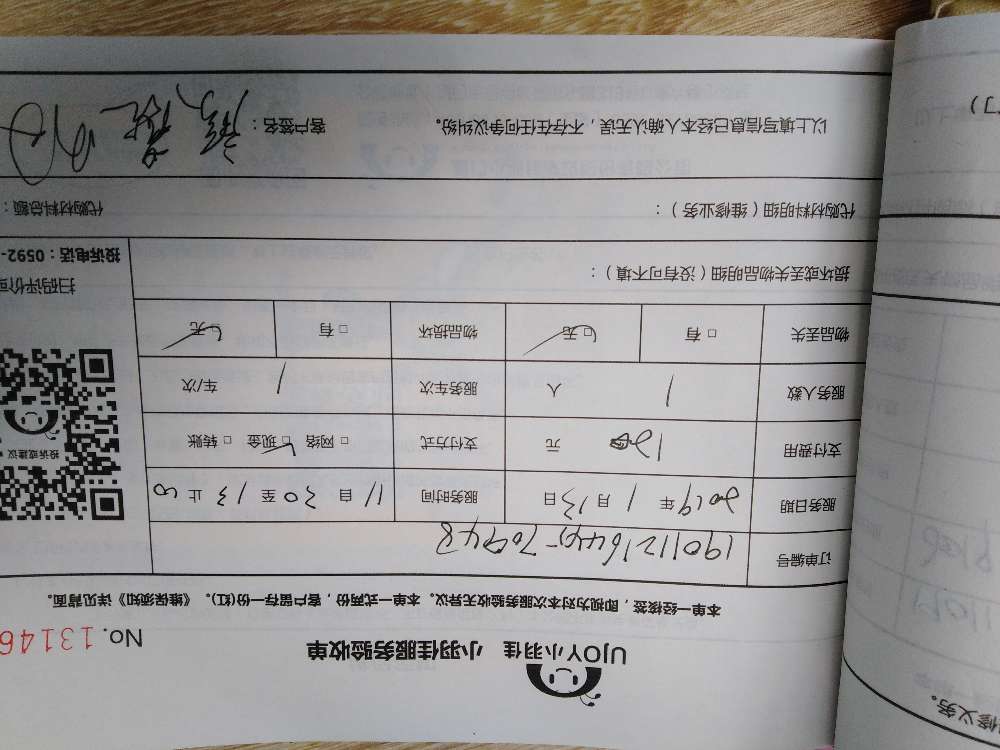 UJOY小羽佳 小羽佳服务验收单
No. 13146
本单一经接签，即视为对本次服务验收无异议。本单一式两份，客户留存一份(红)。《维保须知》详见背面。
订单编号
服务日期 2019年 1月 13日 服务时间 11 自 30 至 13 止
支付费用 元 支付方式 □ 网络 □ 现金 □ 转账
服务人数 1 人 服务车次 1 车/次
物品丢失 □ 有 □ 无 物品损坏 □ 有 □ 无
投诉或建议
扫码评价
投诉电话：0592-
损坏或丢失物品明细（没有可不填）：
代购材料明细（维修业务）： 代购材料总额：
以上填写信息已经本人确认无误，不存在任何争议纠纷。 客户签名：
修义务。